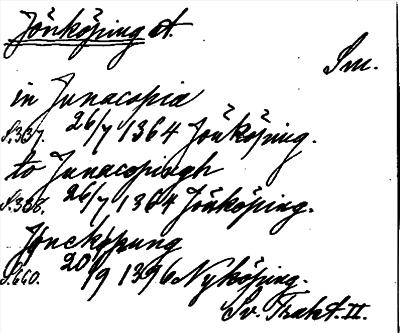 Jönköping st.
Sm.
in Junacopia
S.337. 26/7 1364 Jönköping.
to Junacopingh
S.338. 26/7 1364 Jönköping.
Jonckøpung
S.640. 20/9 1396 Nyköping.
Sv. Trakt. II.